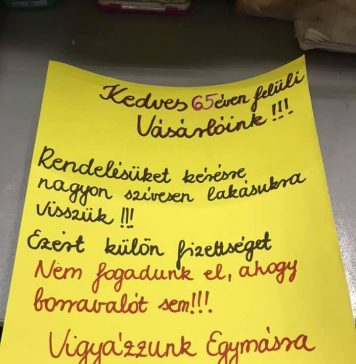 Kedves 65éven felüli
Vásárlóink !!!
Rendelésüket kérésre
nagyon szívesen lakásukra
visszük !!!
Ezért külön fizettséget
Nem fogadunk el, ahogy
borravalót sem!!!
Vigyázzunk Egymásra